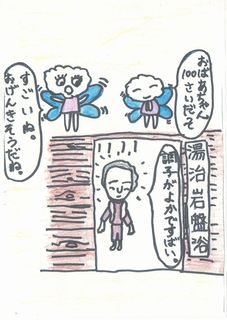 おばあちゃん
100さいだって
すごいね。
おげんきそうだね。
湯治岩盤浴
調子がよかですばい。